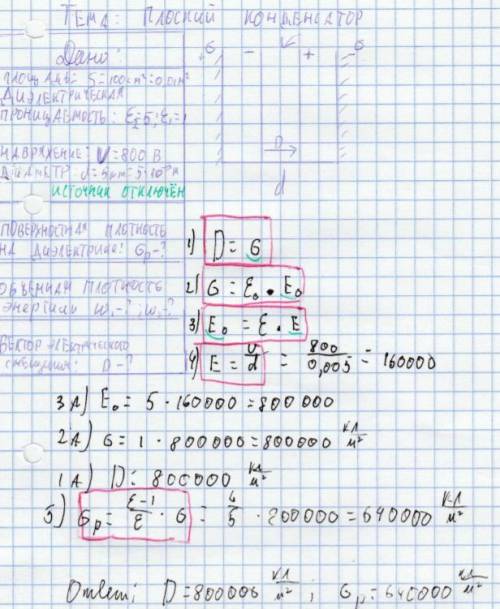 Тема: Плоский конденсатор
Дано:
площадь: S=100см²=0,01м²
Диэлектрическая
проницаемость: ε₂=5; ε₁=1
напряжение: U=800 В
диаметр: d=5мм=5·10⁻³м
источник отключён
поверхностная плотность
на диэлектрике: σp-?
объемная плотность
энергии w₁-?; w₂-?
вектор электрического
смещения: D-?
σ - U + -σ
D
d
1) D = σ
2) σ = ε₀ · E₀
3) E₀ = ε · E
4) E = U/d = 800/0,005 = 160000
3А) E₀ = 5 · 160000 = 800 000
2А) σ = 1 · 800000 = 800000 Кл/м²
1А) D = 800000 Кл/м²
5) σp = ε-1/ε · σ = 4/5 · 800000 = 640000 Кл/м²
Ответ: D=800000 Кл/м² ; σp=640000 Кл/м²